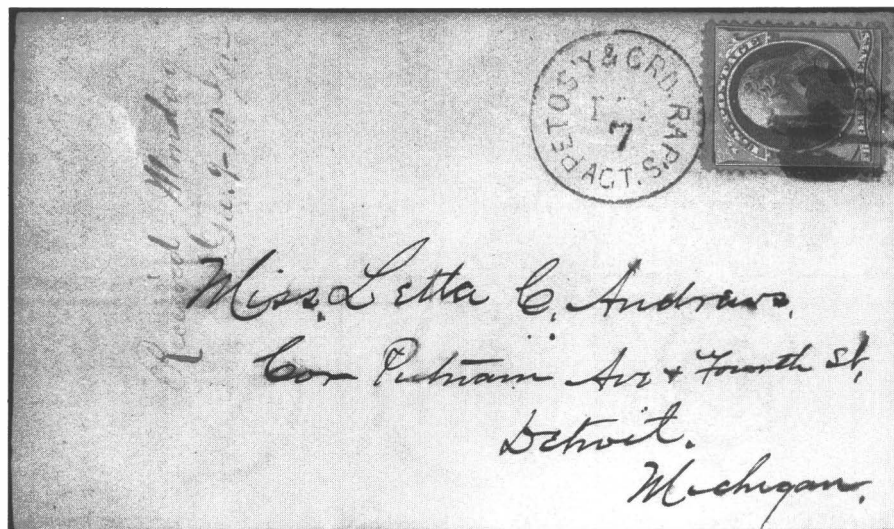 PETOS'Y & GRD. RAP'S. AGT.
7
POSTAGE
Received Monday
Miss. Letta C. Andrews.
Cor Putnam Ave & Fourth St,
Detroit.
Michigan.